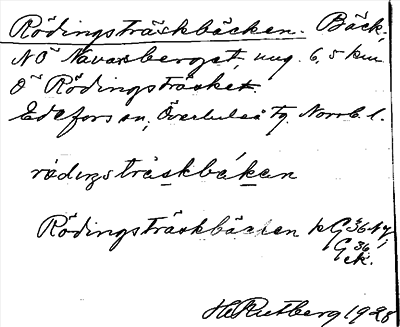 Rödingsträskbäcken. Bäck,
NÖ Navarsberget, ung. 6,5 km
Ö Rödingsträsket.
Edefors sn, Överluleå tg. Norrb. l.
rö̀diŋstrăskbákan
Rödingsträskbäcken på G 36 ny,
G 36 ek.
H. Rutberg 1928